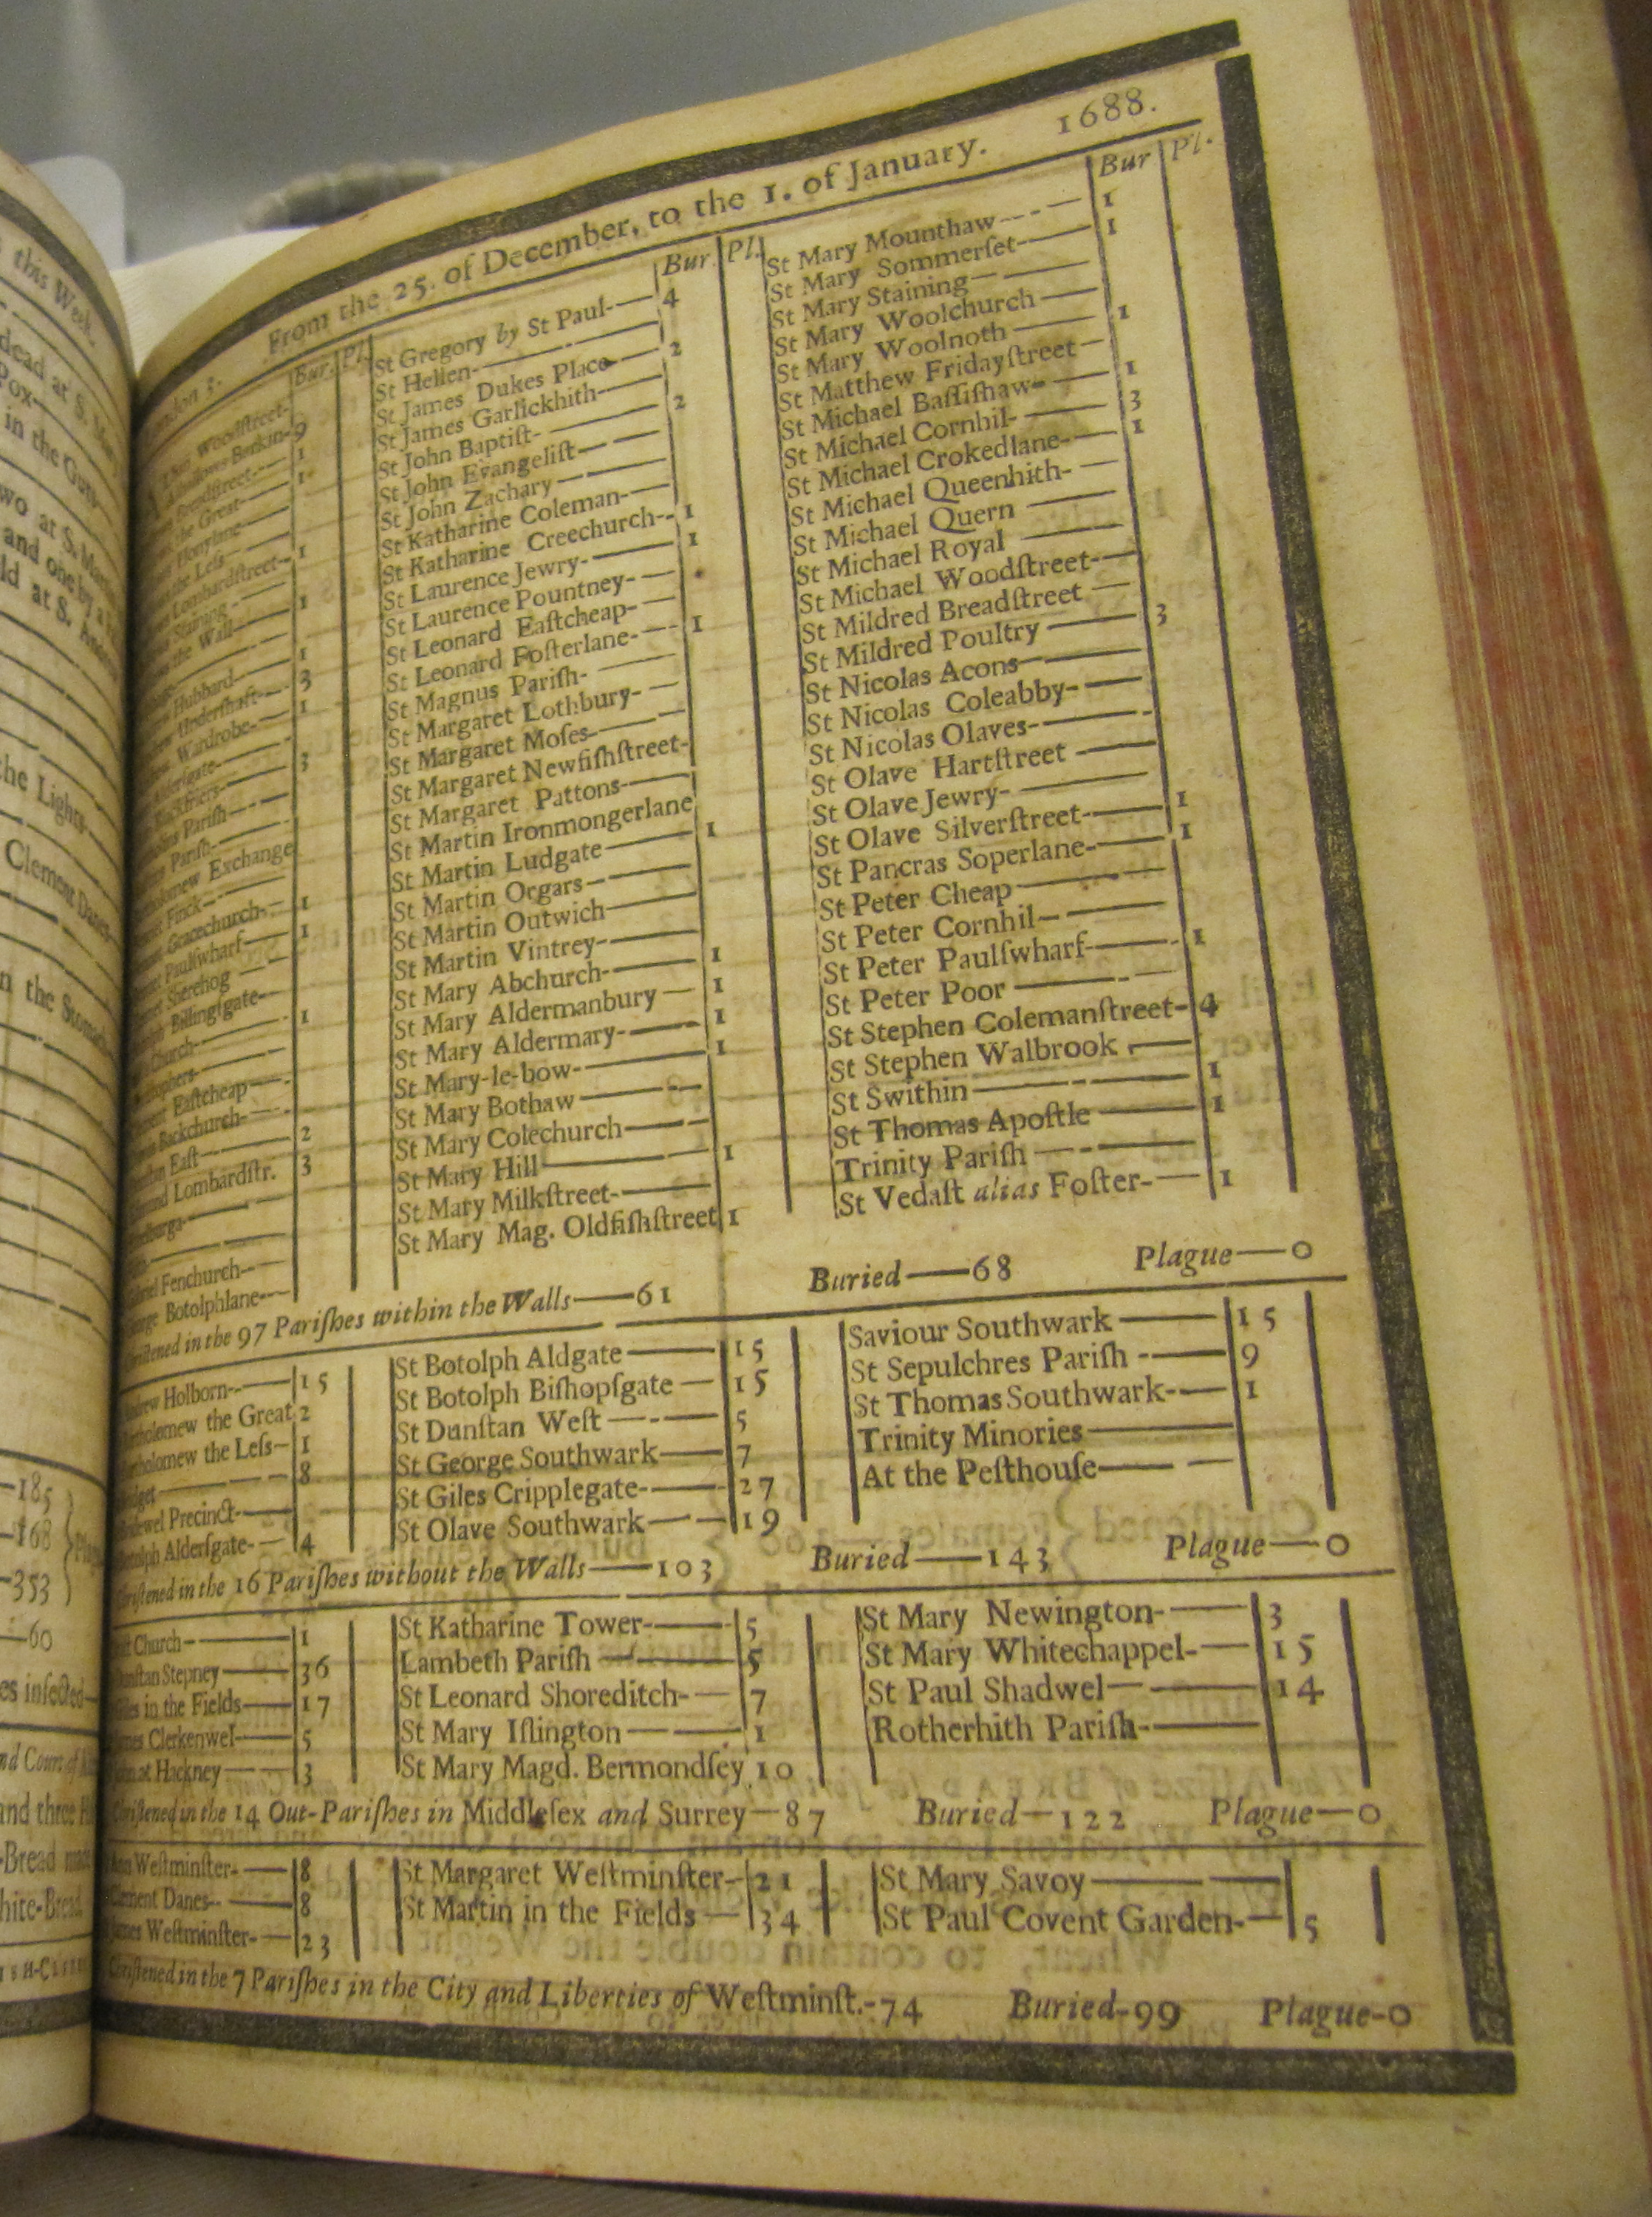 this Week.
dead at S. Mary
Pox
in the Guts
two at S. Marti
and one by a
ld at S. Andrew
the Lights
Clement Danes
n the Stomach
185
168
353
60
es infected
nd three
Bread made
hite-Bread
From the 25. of December, to the 1. of January. 1688.
Bur. Pl.
Woodſtreet
Allhallows Barkin 9
Breadſtreet 1
the Great 1
Honylane
the Leſs
Lombardſtreet 1
Staining
the Wall 1
Hubbard 1
Underſhaft 3
Wardrobe 1
Alderſgate
Blackfriers 3
Pariſh
Pariſh
Exchange
Finck
Gracechurch 1
Paulſwharf 1
Sherehog
Billingſgate
Church 1
Eaſtcheap
Backchurch
Eaſt 2
Lombardſtr. 3
Fenchurch
Botolphlane
Bur. Pl.
St Gregory by St Paul 4
St Hellen
St James Dukes Place 2
St James Garlickhith
St John Baptiſt 2
St John Evangeliſt
St John Zachary
St Katharine Coleman
St Katharine Creechurch 1
St Laurence Jewry 1
St Laurence Pountney
St Leonard Eaſtcheap
St Leonard Foſterlane 1
St Magnus Pariſh
St Margaret Lothbury
St Margaret Moſes
St Margaret Newfiſhſtreet
St Margaret Pattons
St Martin Ironmongerlane
St Martin Ludgate 1
St Martin Orgars
St Martin Outwich
St Martin Vintrey
St Mary Abchurch 1
St Mary Aldermanbury 1
St Mary Aldermary 1
St Mary-le-bow 1
St Mary Bothaw
St Mary Colechurch
St Mary Hill 1
St Mary Milkſtreet
St Mary Mag. Oldfiſhſtreet 1
Bur Pl.
St Mary Mounthaw 1
St Mary Sommerſet 1
St Mary Staining
St Mary Woolchurch
St Mary Woolnoth 1
St Matthew Fridayſtreet
St Michael Baſſiſhaw 1
St Michael Cornhil 3
St Michael Crokedlane 1
St Michael Queenhith
St Michael Quern
St Michael Royal
St Michael Woodſtreet
St Mildred Breadſtreet
St Mildred Poultry 3
St Nicolas Acons
St Nicolas Coleabby
St Nicolas Olaves
St Olave Hartſtreet
St Olave Jewry
St Olave Silverſtreet 1
St Pancras Soperlane 1
St Peter Cheap
St Peter Cornhil
St Peter Paulſwharf 1
St Peter Poor
St Stephen Colemanſtreet 4
St Stephen Walbrook
St Swithin 1
St Thomas Apoſtle 1
Trinity Pariſh
St Vedaſt alias Foſter 1
Chriſtened in the 97 Pariſhes within the Walls—61 Buried—68 Plague—0
Andrew Holborn 15
Bartholomew the Great 2
Bartholomew the Leſs 1
Bridget 8
Bridewel Precinct
Botolph Alderſgate 4
St Botolph Aldgate 15
St Botolph Biſhopſgate 15
St Dunſtan Weſt 5
St George Southwark 7
St Giles Cripplegate 27
St Olave Southwark 19
Saviour Southwark 15
St Sepulchres Pariſh 9
St Thomas Southwark 1
Trinity Minories
At the Peſthouſe
Chriſtened in the 16 Pariſhes without the Walls—103 Buried—143 Plague—0
Church 1
Dunſtan Stepney 36
Giles in the Fields 17
James Clerkenwel 5
John at Hackney 3
St Katharine Tower 5
Lambeth Pariſh 5
St Leonard Shoreditch 7
St Mary Iſlington 1
St Mary Magd. Bermondſey 10
St Mary Newington 3
St Mary Whitechappel 15
St Paul Shadwel 14
Rotherhith Pariſh
Chriſtened in the 14 Out-Pariſhes in Middleſex and Surrey—87 Buried—122 Plague—0
Ann Weſtminſter 8
Clement Danes 8
James Weſtminſter 23
St Margaret Weſtminſter 21
St Martin in the Fields 34
St Mary Savoy
St Paul Covent Garden 5
Chriſtened in the 7 Pariſhes in the City and Liberties of Weſtminſt.-74 Buried-99 Plague-0